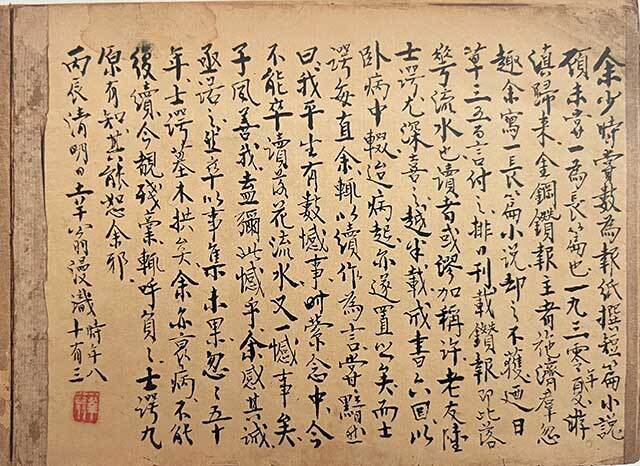 余少時嘗數為報紙撰短篇小說
顧未嘗一為長篇也一九三零年夏游
滇歸來金鋼鑽報主者施濟羣忽
趣余寫一長篇小說却之不獲迺日
草三五百言付之排日刊載鑽報即此落
花流水也讀者或謬加稱許老友陸
士諤尤深喜之越半載成書六回以
臥病中輟迨病起亦遂置之矣而士
諤每直余輒以續作為言嘗黯然
曰我平生有數憾事時縈念中今
不能卒讀落花流水又一憾事矣
子夙善我盍彌此憾乎余感其誠
亟諾之卒以事集未果忽忽五十
年士諤墓木拱矣余亦衰病不能
復續今覩殘稾輒呼負負士諤九
原有知其能恕余邪
丙辰清明日翁漫識時年八十有三